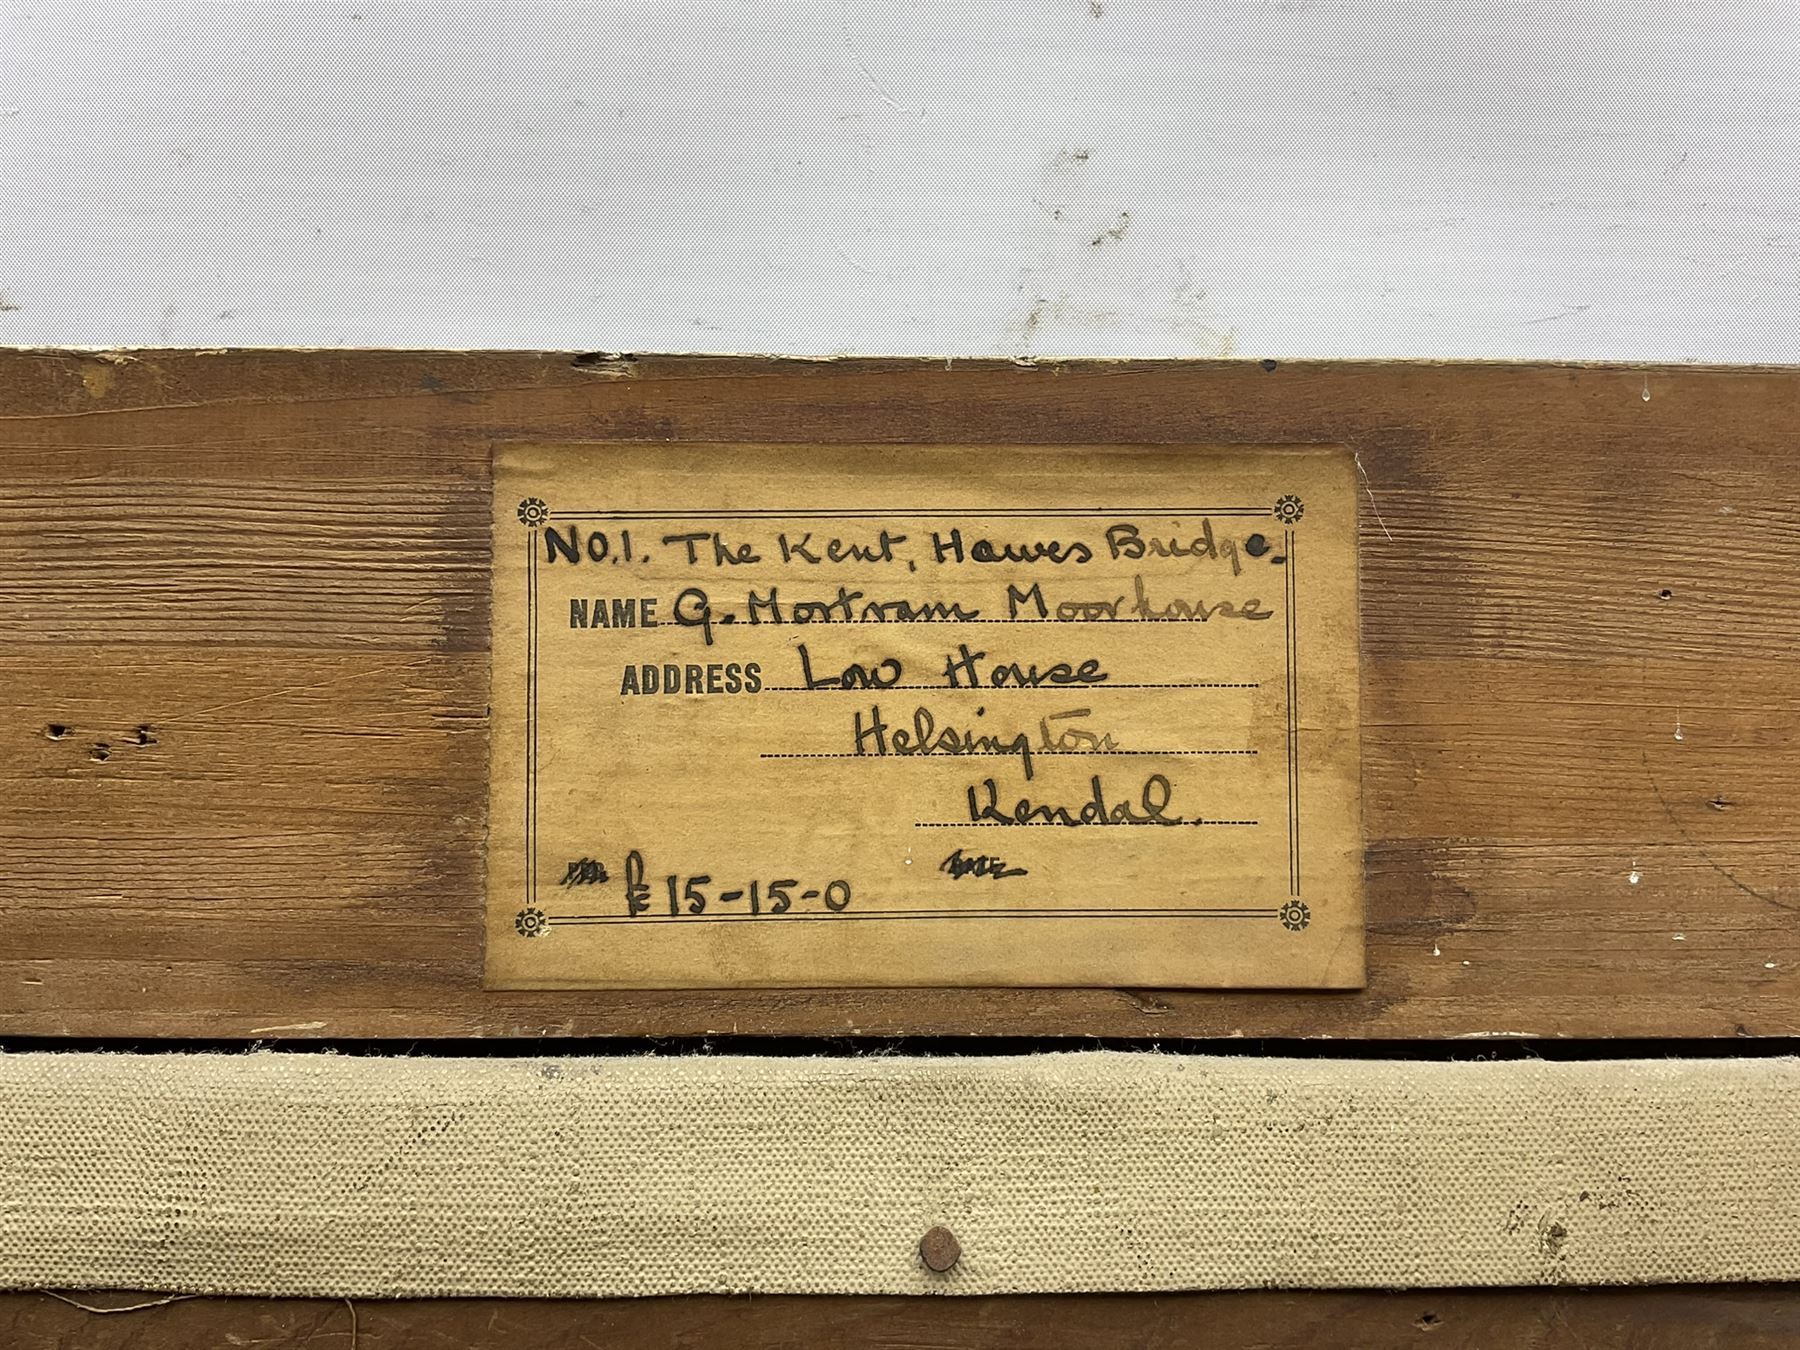 No.1. The Kent, Hawes Bridge.
NAME G. Mortram Moorhouse
ADDRESS Low House
Helsington
Kendal.
£15-15-0